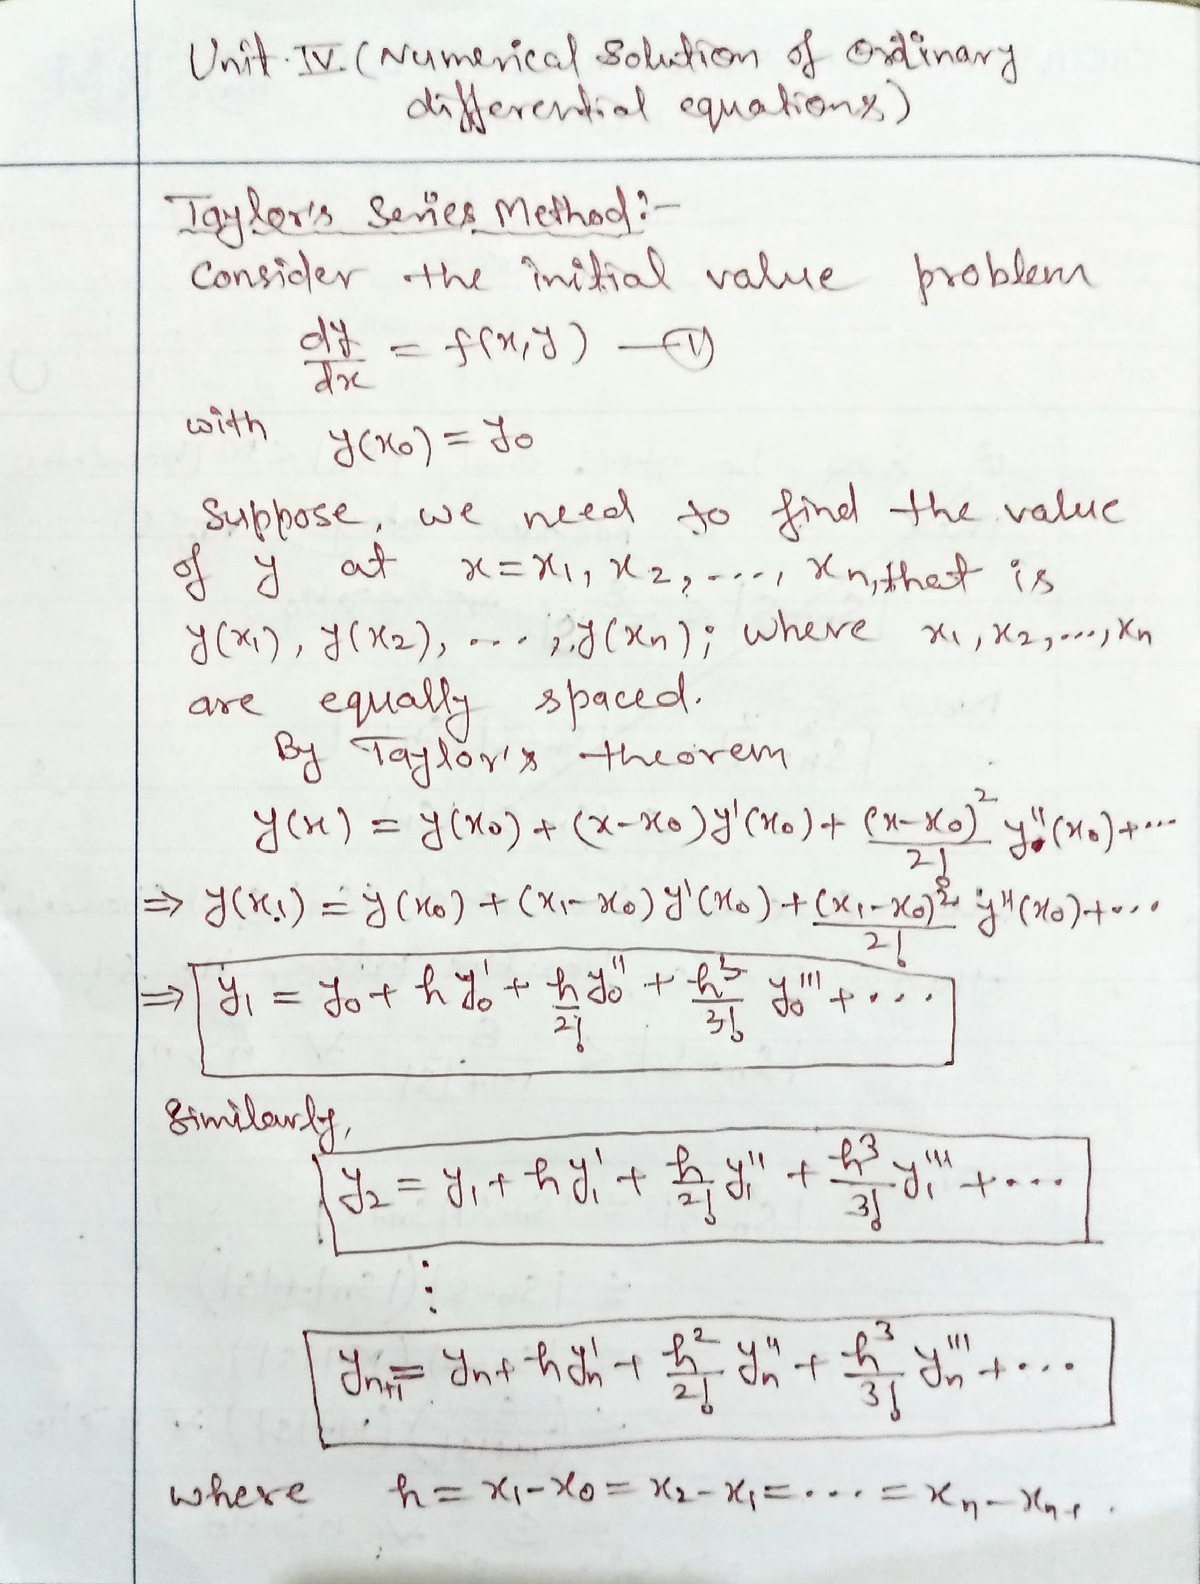 Unit-IV. (Numerical Solution of Ordinary
differential equations)
Taylor's Series Method:-
Consider the initial value problem
dy/dx = f(x,y) —①
with y(x₀) = y₀
Suppose, we need to find the value
of y at x = x₁, x₂, ..., xₙ, that is
y(x₁), y(x₂), ..., y(xₙ); where x₁, x₂, ..., xₙ
are equally spaced.
By Taylor's theorem
y(x) = y(x₀) + (x-x₀)y'(x₀) + (x-x₀)²/2! y''(x₀) + ...
⇒ y(x₁) = y(x₀) + (x₁-x₀)y'(x₀) + (x₁-x₀)²/2! y''(x₀) + ...
⇒ y₁ = y₀ + h y₀' + h/2! y₀'' + h³/3! y₀''' + ....
Similarly,
y₂ = y₁ + h y₁' + h/2! y₁'' + h³/3! y₁''' + ....
⋮
yₙ₊₁ = yₙ + h yₙ' + h²/2! yₙ'' + h³/3! yₙ''' + ....
where h = x₁-x₀ = x₂-x₁ = .... = xₙ-xₙ₋₁.